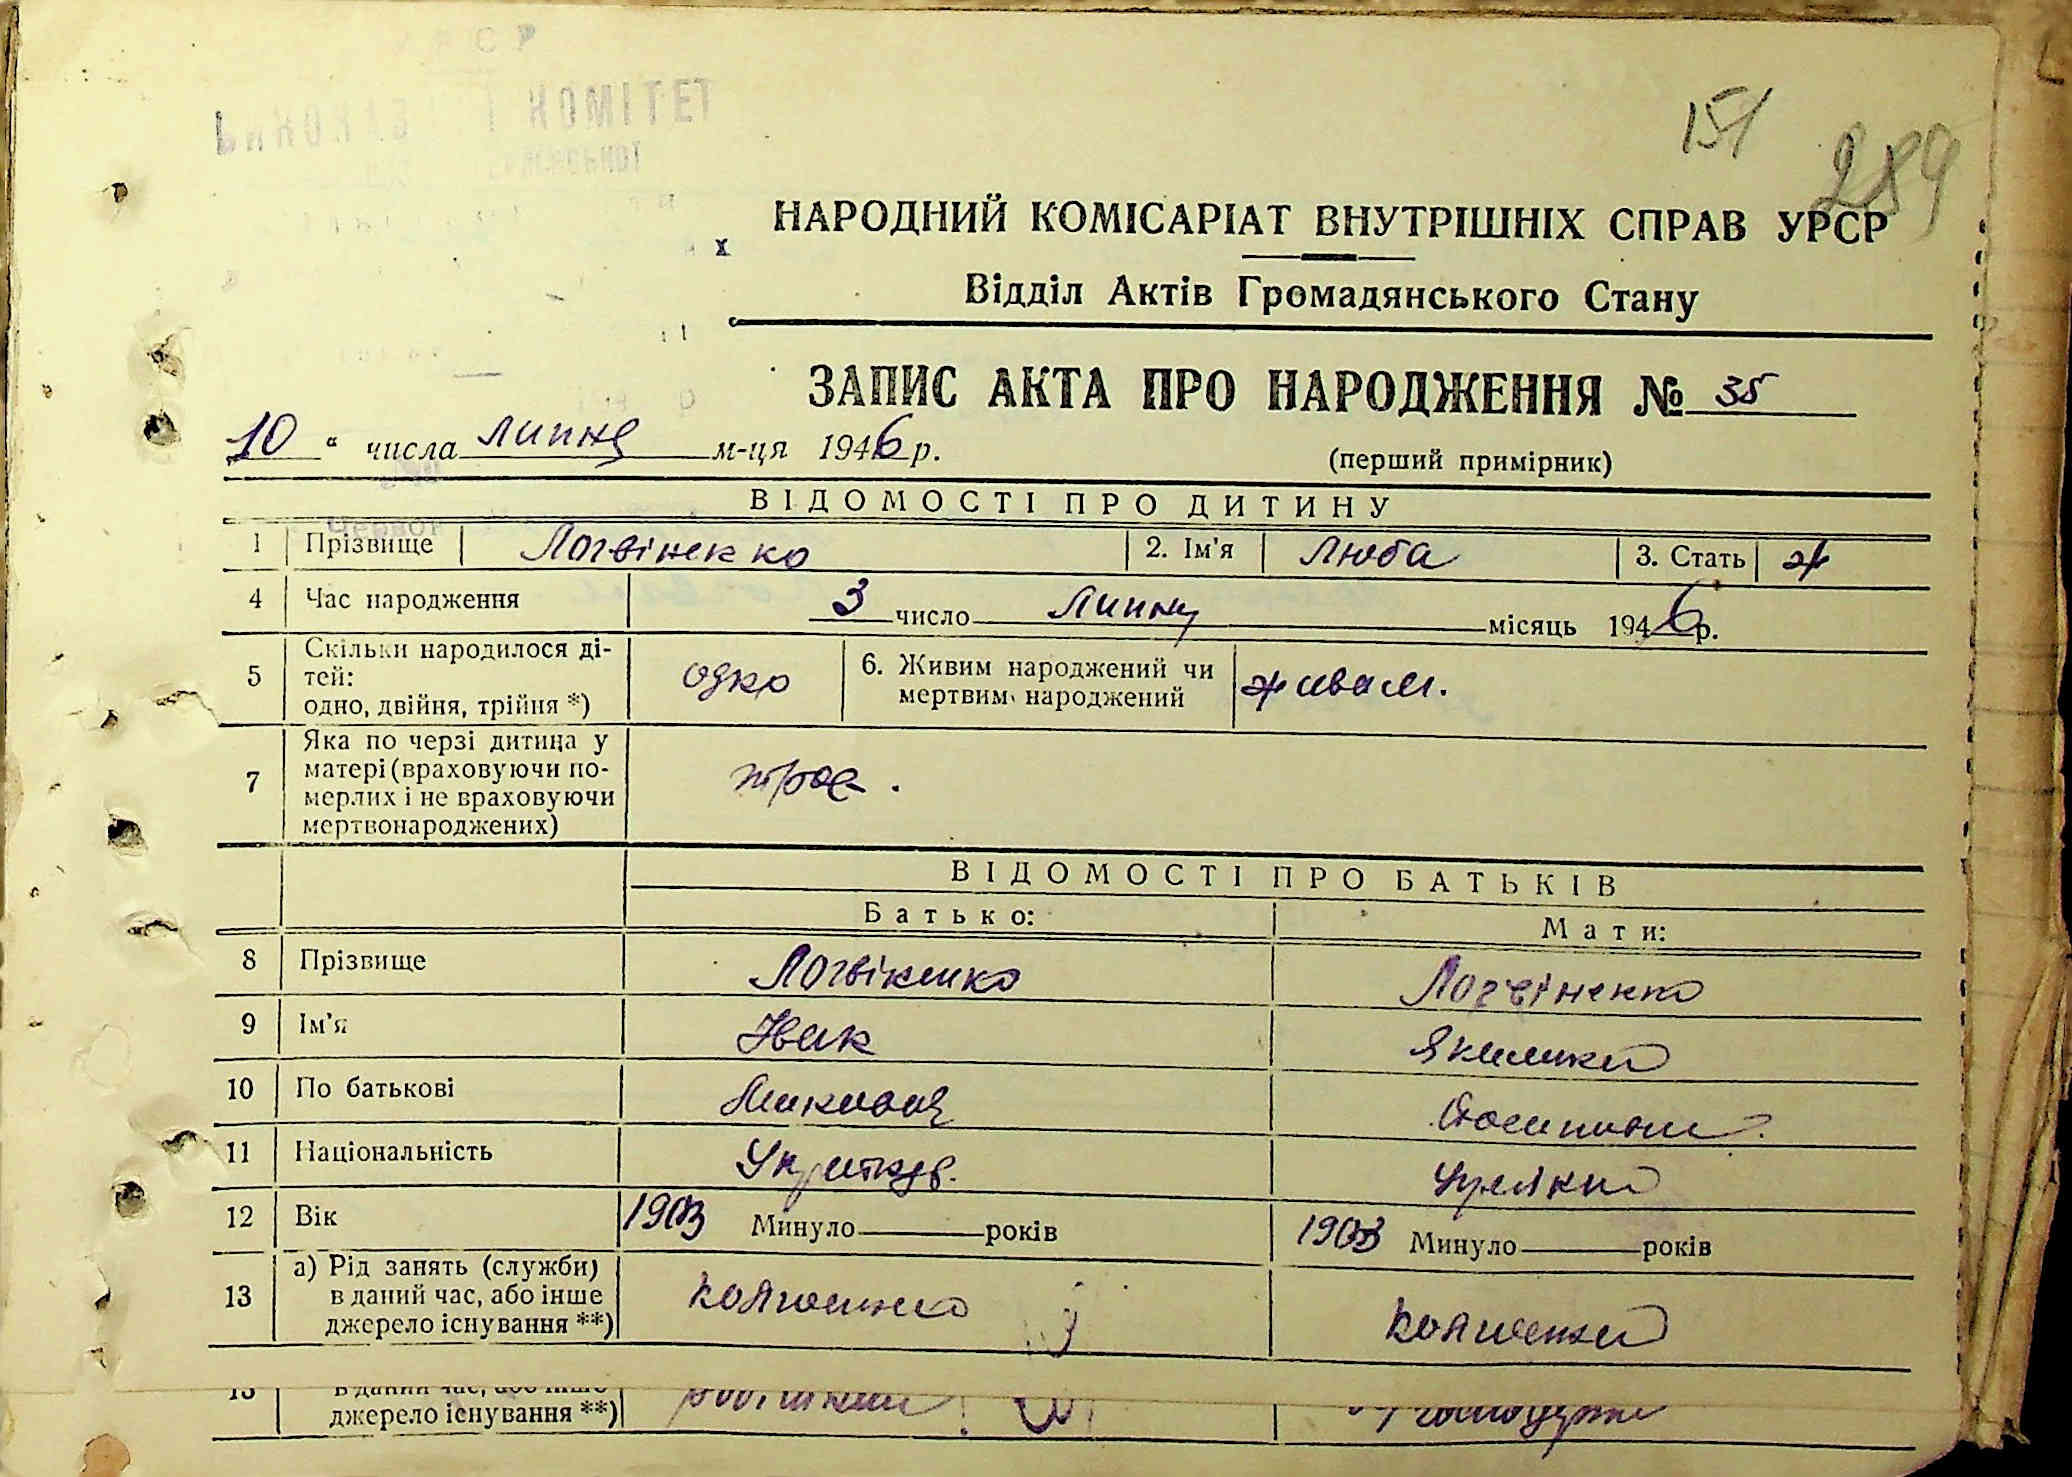 КОМІТЕТ
151
289
НАРОДНИЙ КОМІСАРІАТ ВНУТРІШНІХ СПРАВ УРСР
Відділ Актів Громадянського Стану
ЗАПИС АКТА ПРО НАРОДЖЕННЯ № 35
10 " числа липня м-ця 1946 р.
(перший примірник)
ВІДОМОСТІ ПРО ДИТИНУ
1 Прізвище Логвіненко 2. Ім'я Люба 3. Стать ж
4 Час народження 3 число Липня місяць 1946 р.
5 Скільки народилося ді-
тей:
одно, двійня, трійня *) одно 6. Живим народжений чи
мертвим народжений живим.
7 Яка по черзі дитина у
матері (враховуючи по-
мерлих і не враховуючи
мертвонароджених)
ВІДОМОСТІ ПРО БАТЬКІВ
Батько: Мати:
8 Прізвище Логвіненко Логвіненко
9 Ім'я Іван Якилина
10 По батькові
11 Національність
12 Вік 1903 Минуло років 1903 Минуло років
13 а) Рід занять (служби)
в даний час, або інше
джерело існування **)
13 в даний час, або інше
джерело існування **)